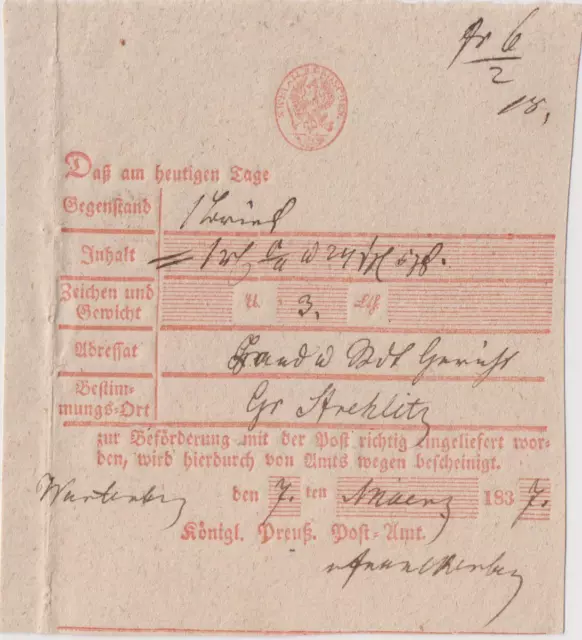 6
2
18.
Daß am heutigen Tage
Gegenstand 1 Brief
Inhalt
Zeichen und Gewicht 3. Lth.
Adressat Land u Stdt Gericht
Bestim-
mungs-Ort Gr Strehlitz
zur Beförderung mit der Post richtig eingeliefert wor-
den, wird hierdurch von Amts wegen bescheinigt.
Wartenberg den 7. ten Maerz 1837.
Königl. Preuß. Post-Amt.